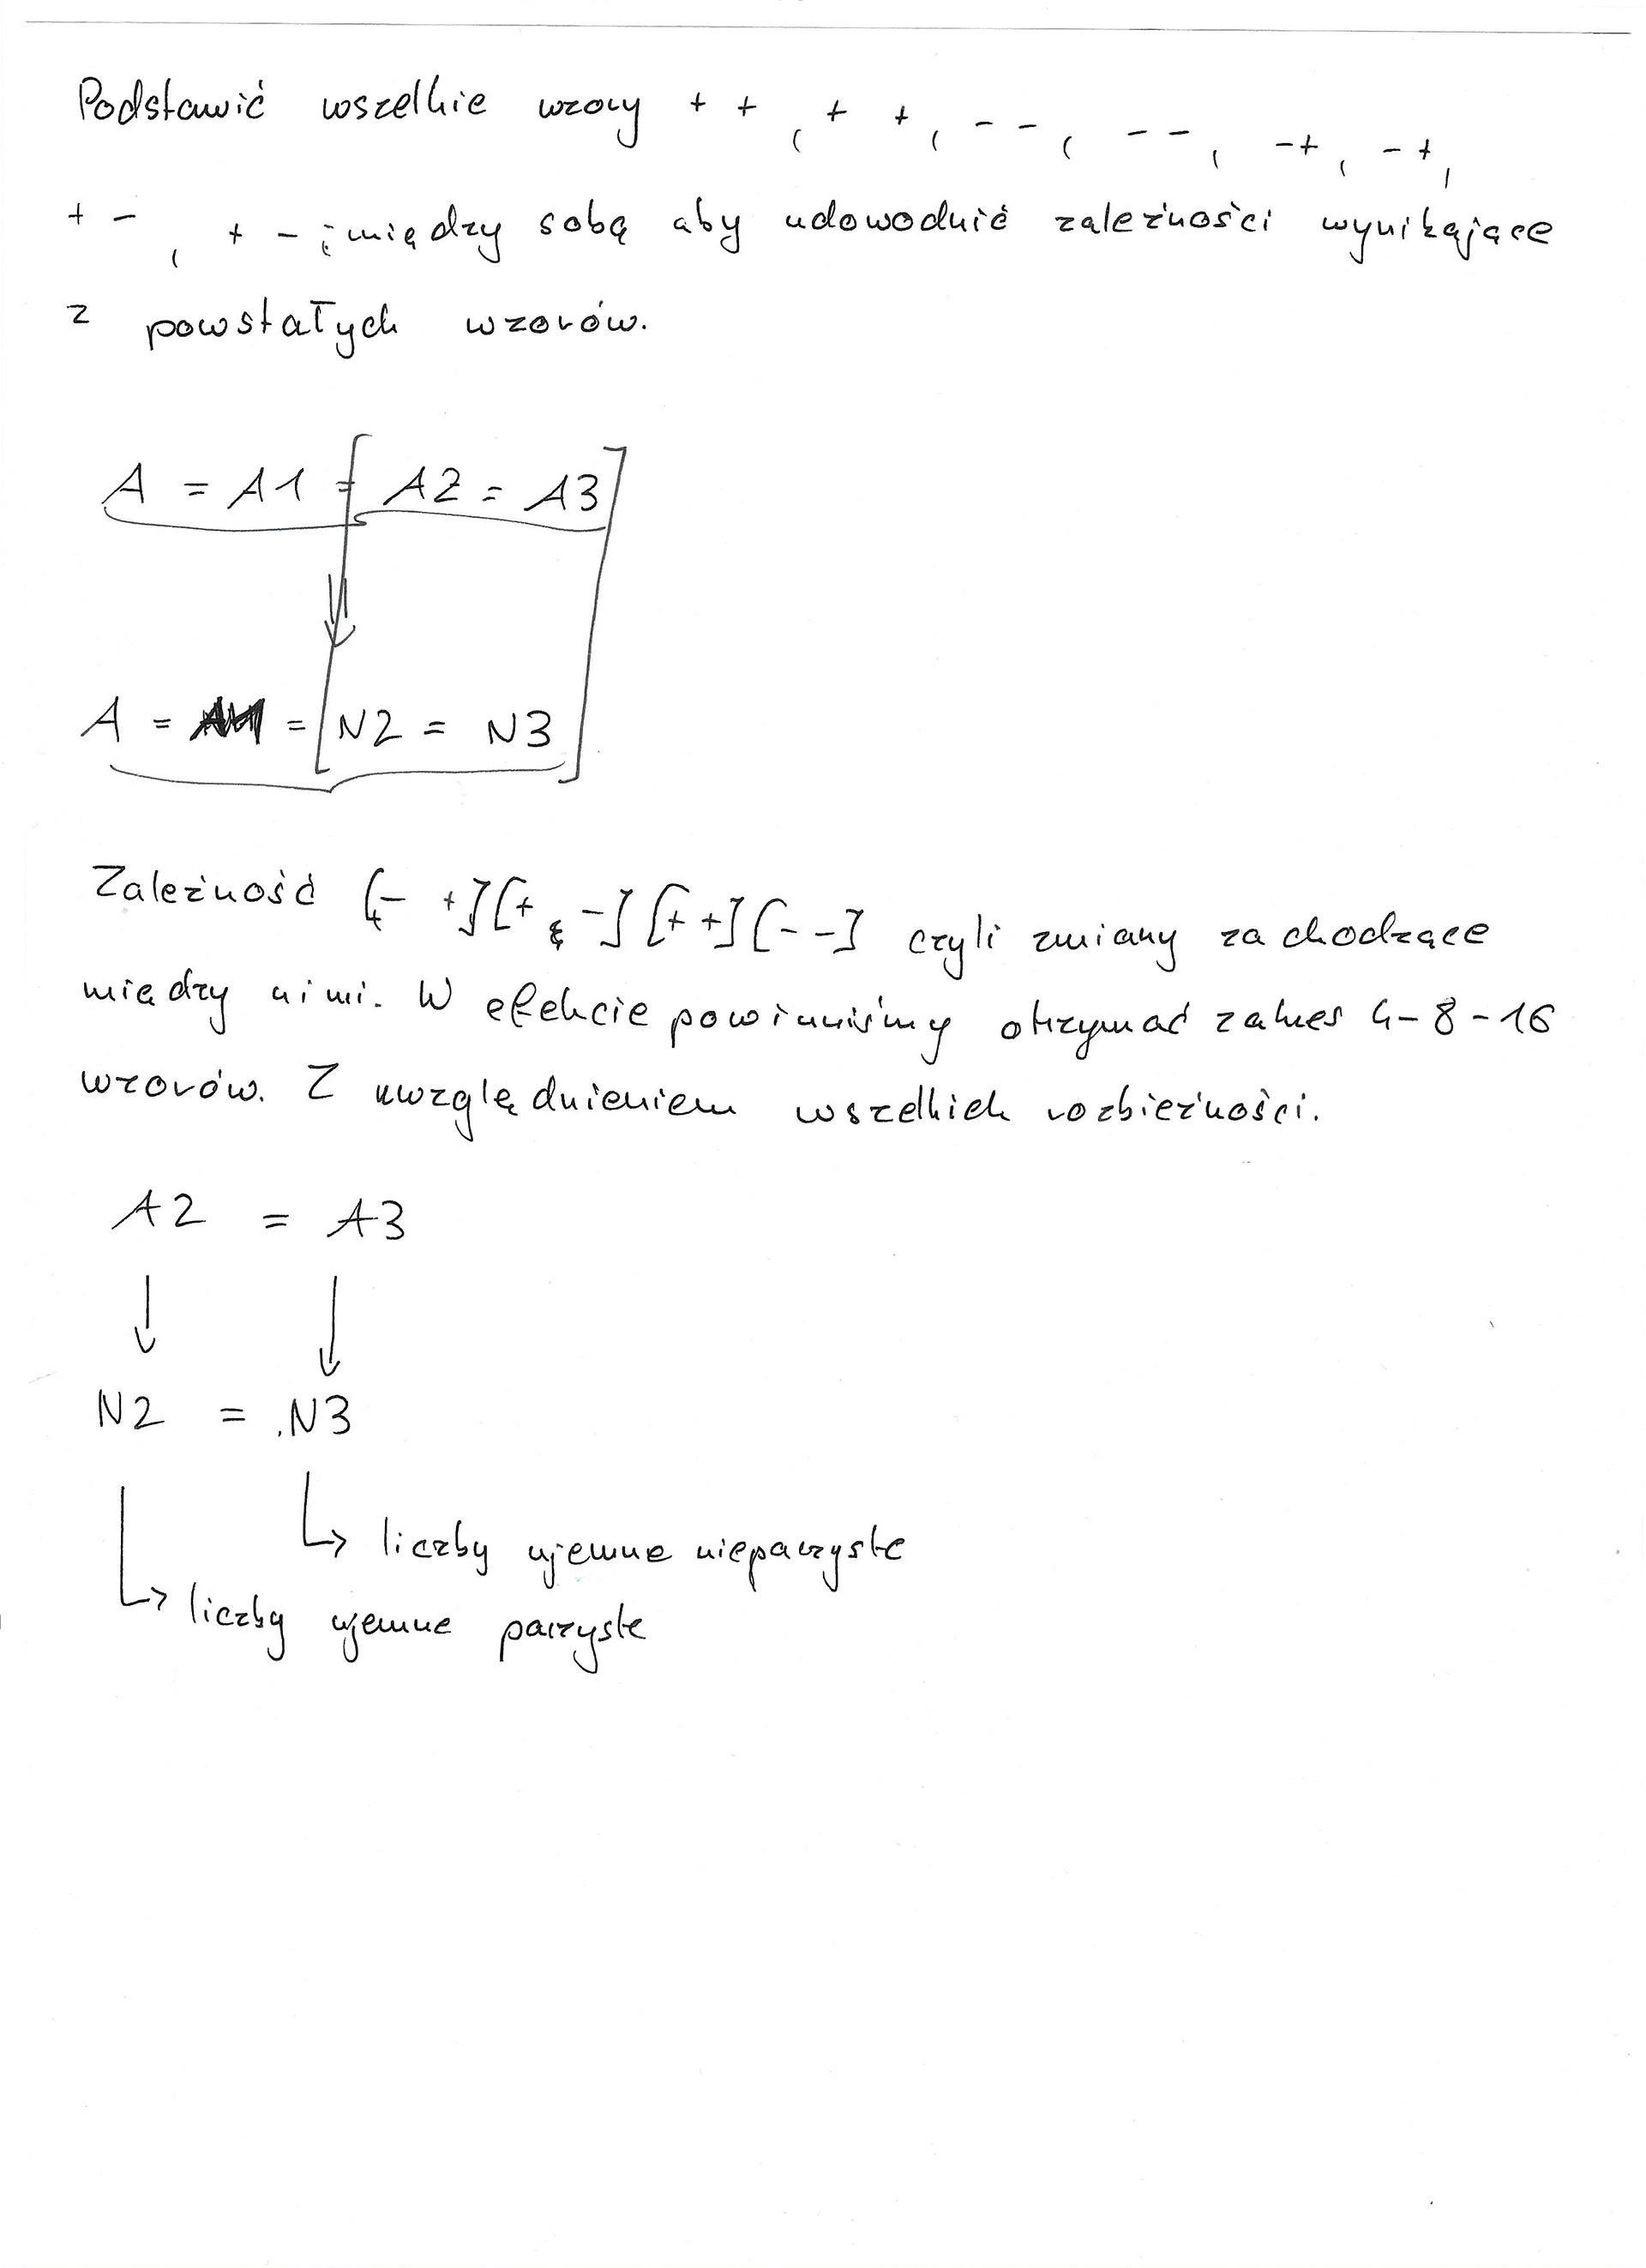 Podstawić wszelkie wzory + +, + +, - -, - -, -+, -+,
+ -, + -; między sobą aby udowodnić zależności wynikające
z powstałych wzorów.
A = A1 = [A2 = A3]
A = = [N2 = N3]
Zależność [- +][+ -][+ +][- -] czyli zmiany zachodzące
między nimi. W efekcie powinniśmy otrzymać zakres 4-8-16
wzorów. Z uwzględnieniem wszelkich rozbieżności.
A2 = A3
N2 = N3
liczby ujemne nieparzyste
liczby ujemne parzyste